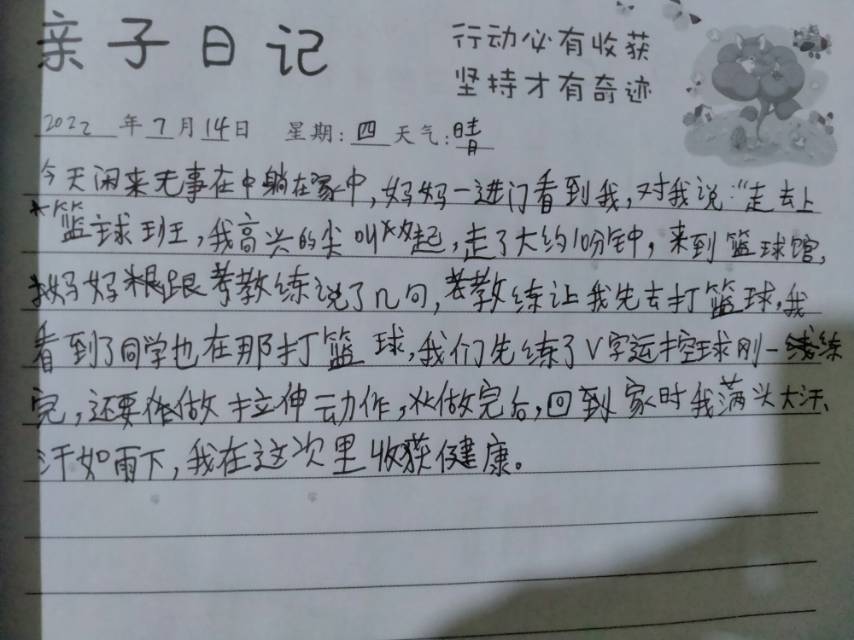 亲子日记
行动必有收获
坚持才有奇迹
2022年7月14日 星期:四 天气:晴
今天闲来无事在中躺在家中,妈妈一进门看到我,对我说:“走去上
篮球班,我高兴的尖叫起,走了大约10分钟,来到篮球馆,
妈妈跟教练说了几句,教练让我先去打篮球,我
看到了同学也在那打篮球,我们先练了V字运控球刚一练
完,还要做拉伸动作,做完后,回到家时我满头大汗、
汗如雨下,我在这次里收获健康。